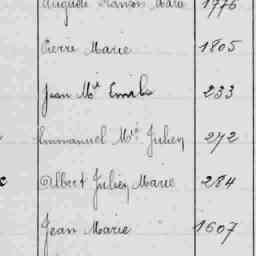 Auguste Ranson Marie 1776
Pierre Marie 1805
Jean Mie Emile 233
Emmanuel Mie Julien 272
Albert Julien Marie 284
Jean Marie 1607